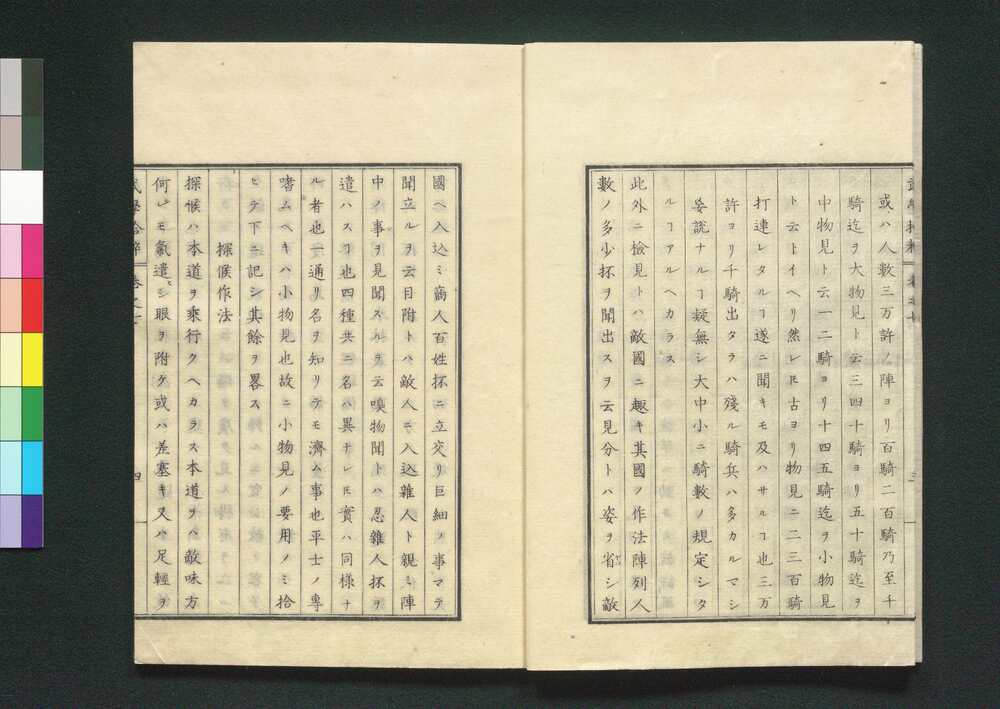 或ハ人數三万許ノ陣ヨリ百騎二百騎乃至千
騎迄ヲ大物見ト云三四十騎ヨリ五十騎迄ヲ
中物見ト云一二騎ヨリ十四五騎迄ヲ小物見
ト云トイヘリ然レ𪜈古ヨリ物見ニ二三百騎
打連レタルヿ遂ニ聞キモ及ハサルヿ也三万
許ヨリ千騎出タラハ殘ル騎兵ハ多カルマシ
妄説ナルヿ疑無シ大中小ニ騎數ノ規定シタ
ルヿアルヘカラス
此外ニ檢見トハ敵國ニ趣キ其國ノ作法陣列人
數ノ多少抔ヲ聞出スヲ云見分トハ姿ヲ省シ敵
國ヘ入込ミ商人百姓抔ニ立交リ巨細ノ事マテ
聞立ルヲ云目附トハ敵人ニ入込雜人ト親ミ陣
中ノ事ヲ見聞スルヲ云嗅物聞トハ忍雜人抔ヲ
遣ハスヿ也四種共ニ名ハ異ナレ𪜈實ハ同樣ナ
ル者也一通リ名ヲ知リテモ濟ム事也平士ノ專
嗜ムヘキハ小物見也故ニ小物見ノ要用ノミ拾
ヒテ下ニ記シ其餘ヲ畧ス
探候作法
探候ハ本道ヲ乘行クヘカラス本道ヲハ敵味方
何レモ氣遣シ眼ヲ附ケ或ハ差塞キ又ハ足輕ヲ
武學拾粹
卷之七
四